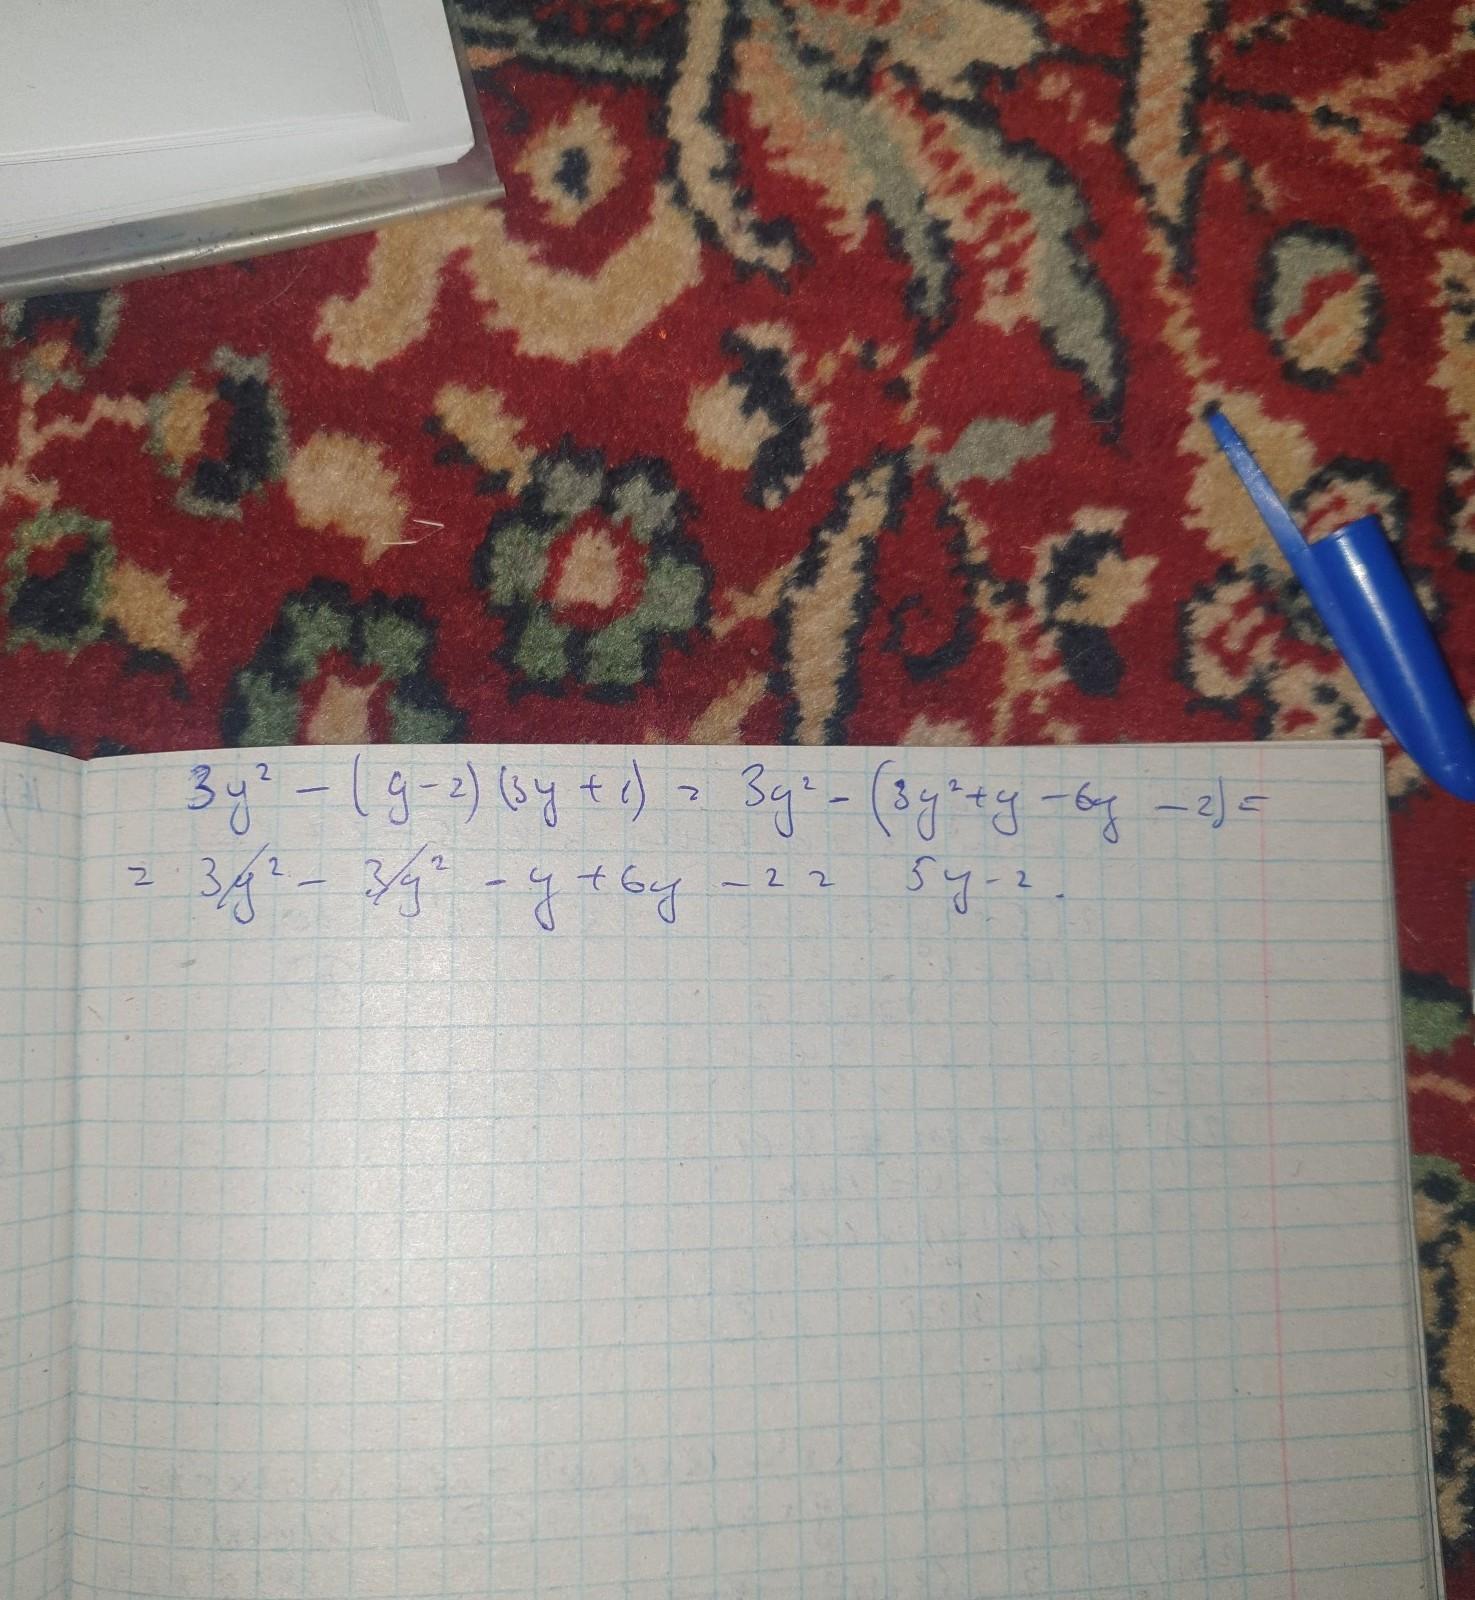 3y² - (y-2)(3y+1) = 3y² - (3y²+y-6y-2) =
= 3y² - 3y² - y + 6y - 2 = 5y-2.